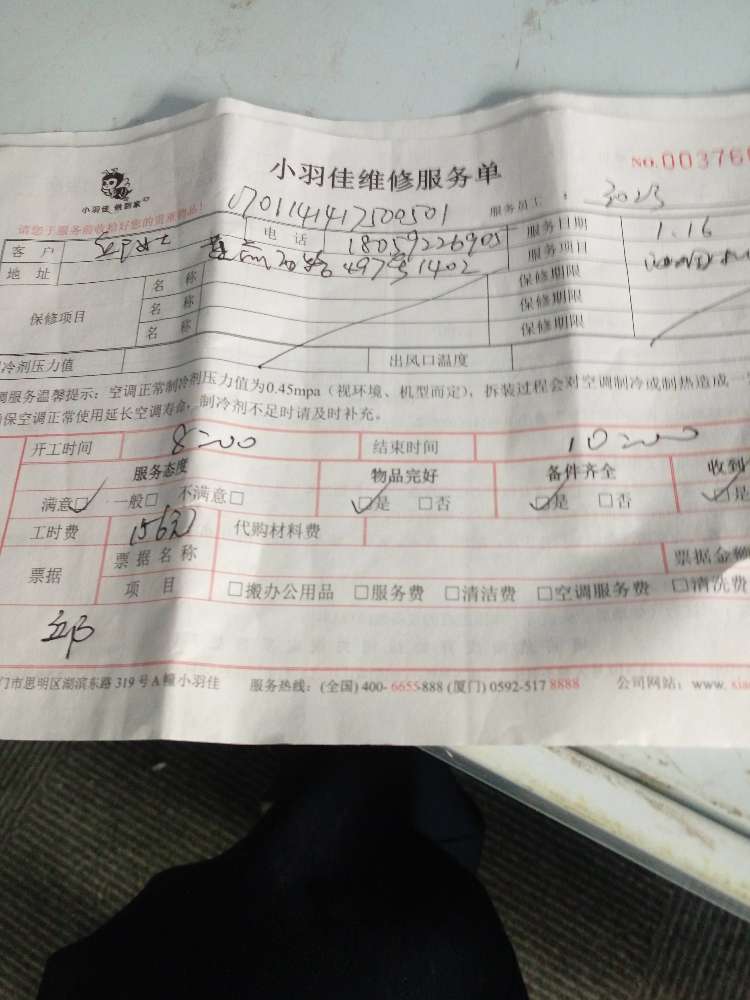 小羽佳维修服务单
NO.003760
小羽佳 做到家
请您于服务前收拾好您的贵重物品!
服务员工: 3023
170114141750501
客户 电话 18059226905 服务日期 1.16
地址 497号1402 服务项目
保修项目 名称 保修期限
名称 保修期限
名称 保修期限
冷剂压力值 出风口温度
调服务温馨提示:空调正常制冷剂压力值为0.45mpa(视环境、机型而定),拆装过程会对空调制冷或制热造成一
保空调正常使用延长空调寿命,制冷剂不足时请及时补充。
开工时间 8:00 结束时间 10:00
服务态度 物品完好 备件齐全 收到
满意□ 一般□ 不满意□ □是 □否 □是 □否 □是
工时费 156元 代购材料费
票据 票据名称 票据金额
项目 □搬办公用品 □服务费 □清洁费 □空调服务费 □清洗费
邱
门市思明区湖滨东路319号A幢小羽佳 服务热线:(全国)400-6655-888(厦门)0592-517 8888 公司网站:www.xia